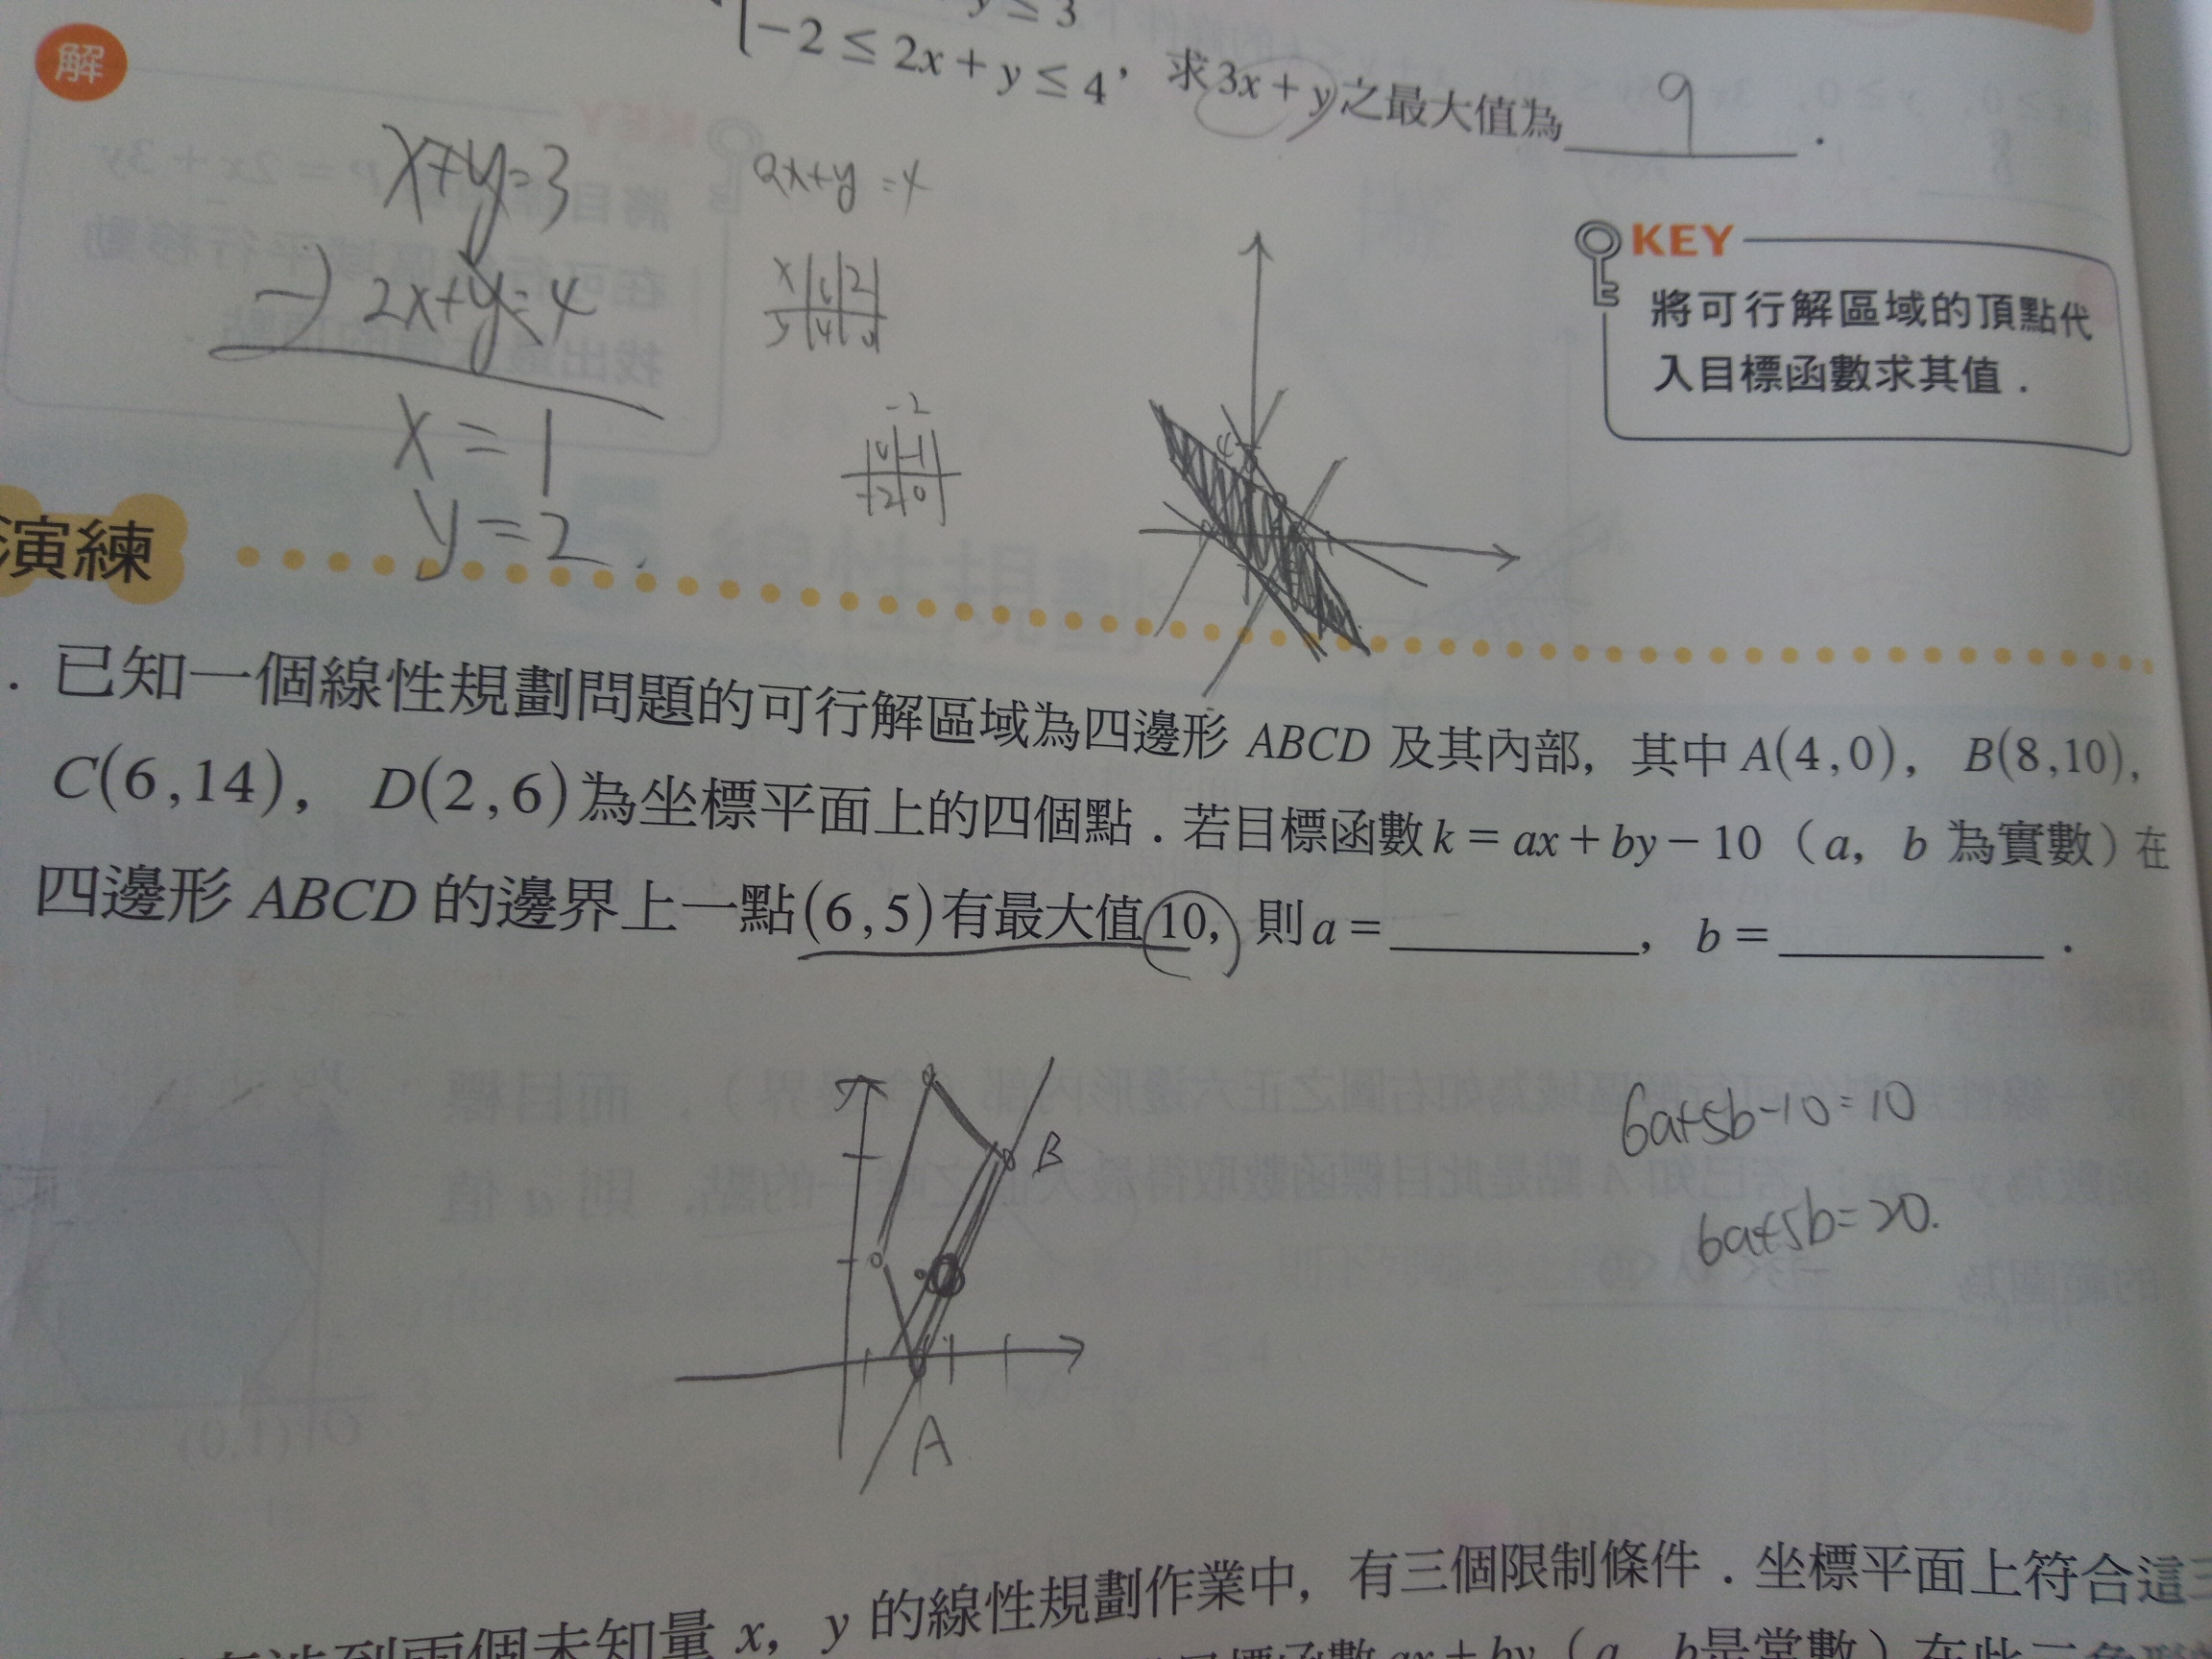 y ≤ 3
-2 ≤ 2x + y ≤ 4, 求3x + y之最大值為 9 .
解
x+y=3
-) 2x+y=4
x = 1
y = 2
2x+y=4
x 1 2
y
-2
0 -1
-2 0
KEY
將可行解區域的頂點代
入目標函數求其值.
演練
. 已知一個線性規劃問題的可行解區域為四邊形 ABCD 及其內部, 其中 A(4,0), B(8,10),
C(6,14), D(2,6)為坐標平面上的四個點. 若目標函數 k = ax + by - 10 (a, b 為實數) 在
四邊形 ABCD 的邊界上一點(6,5)有最大值10, 則 a = ________, b = ________.
6a+5b-10=10
6a+5b=20.
B
A
到兩個未知量 x, y 的線性規劃作業中, 有三個限制條件. 坐標平面上符合這三
目標函數 ax + by (a, b是常數) 在此三角形